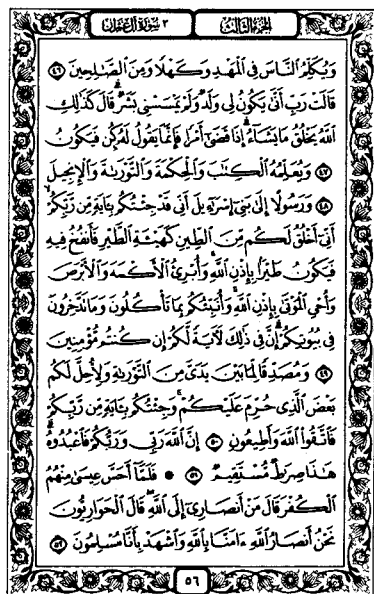 الجزء الثالث
٣ سورة آل عمران
وَيُكَلِّمُ ٱلنَّاسَ فِى ٱلْمَهْدِ وَكَهْلًا وَمِنَ ٱلصَّٰلِحِينَ ٤٦
قَالَتْ رَبِّ أَنَّىٰ يَكُونُ لِى وَلَدٌ وَلَمْ يَمْسَسْنِى بَشَرٌ قَالَ كَذَٰلِكِ
ٱللَّهُ يَخْلُقُ مَا يَشَآءُ إِذَا قَضَىٰٓ أَمْرًا فَإِنَّمَا يَقُولُ لَهُۥ كُن فَيَكُونُ
٤٧ وَيُعَلِّمُهُ ٱلْكِتَٰبَ وَٱلْحِكْمَةَ وَٱلتَّوْرَىٰةَ وَٱلْإِنجِيلَ
٤٨ وَرَسُولًا إِلَىٰ بَنِىٓ إِسْرَٰٓءِيلَ أَنِّى قَدْ جِئْتُكُم بِـَٔايَةٍ مِّن رَّبِّكُمْ
أَنِّىٓ أَخْلُقُ لَكُم مِّنَ ٱلطِّينِ كَهَيْـَٔةِ ٱلطَّيْرِ فَأَنفُخُ فِيهِ
فَيَكُونُ طَيْرًۢا بِإِذْنِ ٱللَّهِ وَأُبْرِئُ ٱلْأَكْمَهَ وَٱلْأَبْرَصَ
وَأُحْىِ ٱلْمَوْتَىٰ بِإِذْنِ ٱللَّهِ وَأُنَبِّئُكُم بِمَا تَأْكُلُونَ وَمَا تَدَّخِرُونَ
فِى بُيُوتِكُمْ إِنَّ فِى ذَٰلِكَ لَـَٔايَةً لَّكُمْ إِن كُنتُم مُّؤْمِنِينَ
٤٩ وَمُصَدِّقًا لِّمَا بَيْنَ يَدَىَّ مِنَ ٱلتَّوْرَىٰةِ وَلِأُحِلَّ لَكُم
بَعْضَ ٱلَّذِى حُرِّمَ عَلَيْكُمْ وَجِئْتُكُم بِـَٔايَةٍ مِّن رَّبِّكُمْ
فَٱتَّقُوا۟ ٱللَّهَ وَأَطِيعُونِ ٥٠ إِنَّ ٱللَّهَ رَبِّى وَرَبُّكُمْ فَٱعْبُدُوهُ
هَٰذَا صِرَٰطٌ مُّسْتَقِيمٌ ٥١ ۞ فَلَمَّآ أَحَسَّ عِيسَىٰ مِنْهُمُ
ٱلْكُفْرَ قَالَ مَنْ أَنصَارِىٓ إِلَى ٱللَّهِ قَالَ ٱلْحَوَارِيُّونَ
نَحْنُ أَنصَارُ ٱللَّهِ ءَامَنَّا بِٱللَّهِ وَٱشْهَدْ بِأَنَّا مُسْلِمُونَ ٥٢
٥٦